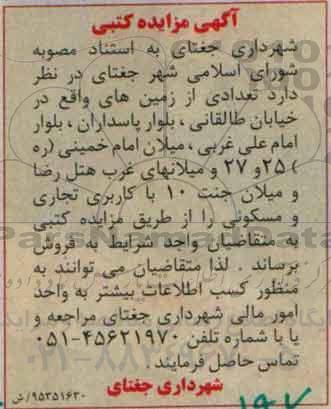 آگهی مزایده کتبی
شهرداری جغتای به استناد مصوبه
شورای اسلامی شهر جغتای در نظر
دارد تعدادی از زمین های واقع در
خیابان طالقانی ، بلوار پاسداران ، بلوار
امام علی غربی ، میلان امام خمینی (ره
) ۲۵و ۲۷ و میلانهای غرب هتل رضا
و میلان جنت ۱۰ با کاربری تجاری
و مسکونی را از طریق مزایده کتبی
به متقاضیان واجد شرایط به فروش
برساند . لذا متقاضیان می توانند به
منظور کسب اطلاعات بیشتر به واحد
امور مالی شهرداری جغتای مراجعه و
یا با شماره تلفن ۴۵۶۲۱۹۷۰-۰۵۱
تماس حاصل فرمایند .
شهرداری جغتای
۹۵۳۵۱۶۳۰/ش